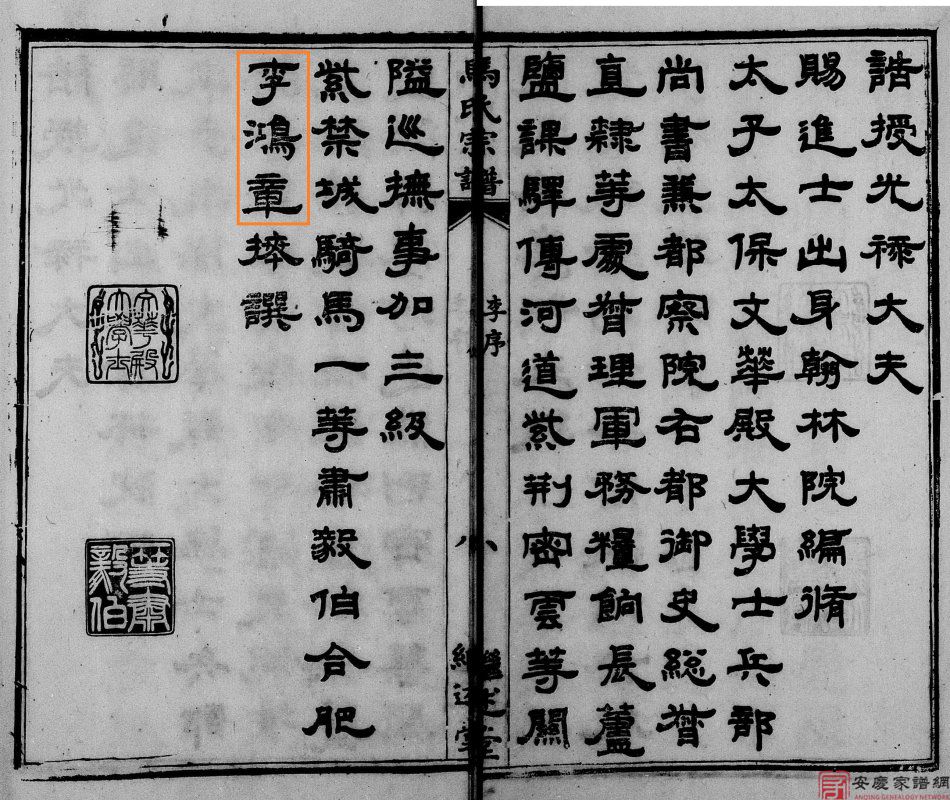 誥授光祿大夫
賜進士出身翰林院編脩
太子太保文華殿大學士兵部
尚書兼都察院右都御史總督
直隸等處督理軍務糧餉長蘆
鹽課驛傳河道紫荆密雲等關
馬氏宗譜
李序
八
繼述堂
隘巡撫事加三級
紫禁城騎馬一等肅毅伯合肥
李鴻章捧譔
文華殿大學士
一等肅毅伯
安慶家譜網
ANQING GENEALOGY NETWORK